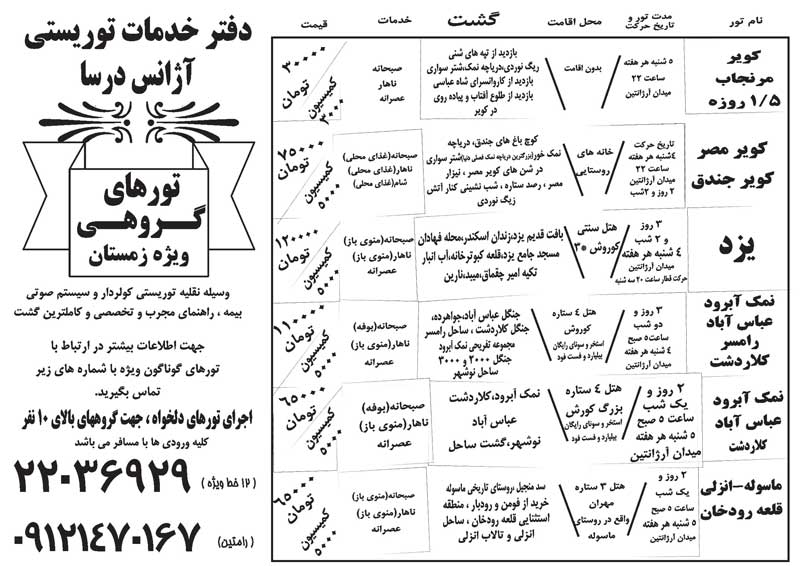 دفتر خدمات توریستی
آژانس درسا
تورهای
گروهی
ویژه زمستان
وسیله نقلیه توریستی کولردار و سیستم صوتی
بیمه ، راهنمای مجرب و تخصصی و کاملترین گشت
جهت اطلاعات بیشتر در ارتباط با
تورهای گوناگون ویژه با شماره های زیر
تماس بگیرید.
اجرای تورهای دلخواه ، جهت گروههای بالای ۱۰ نفر
کلیه ورودی ها با مسافر می باشد
۲۲۰۳۶۹۲۹ (۱۲ خط ویژه)
۰۹۱۲۱۴۷۰۱۶۷ (رامتین)
نام تور
مدت تور و
تاریخ حرکت
محل اقامت
گشت
خدمات
قیمت
کویر
مرنجاب
۱/۵ روزه
۵ شنبه هر هفته
ساعت ۲۲
میدان آرژانتین
بدون اقامت
بازدید از تپه های شنی
ریگ نوردی،دریاچه نمک،شتر سواری
بازدید از کاروانسرای شاه عباسی
بازدید از طلوع آفتاب و پیاده روی
در کویر
صبحانه
ناهار
عصرانه
۳۰۰۰۰
تومان
کمیسیون
۲۰۰۰
کویر مصر
کویر جندق
تاریخ حرکت
٤شنبه هر هفته
ساعت ۲۲
میدان آرژانتین
۲ روز و ۲شب
خانه های
روستایی
کوچ باغ های جندق، دریاچه
نمک خور(بزرگترین دریاچه نمک فصلی دنیا)شتر سواری
در شن های کویر مصر ، نیزار
مصر ، رصد ستاره ، شب نشینی کنار آتش
ریگ نوردی
صبحانه(غذای محلی)
ناهار(غذای محلی)
شام(غذای محلی)
۷۵۰۰۰
تومان
کمیسیون
۵۰۰۰
یزد
۳ روز
و ۲ شب
٤ شنبه هر هفته
میدان آرژانتین
حرکت قطار ساعت ۲۰ سه شنبه
هتل سنتی
کوروش ۳*
بافت قدیم یزد،زندان اسکندر،محله فهادان
مسجد جامع یزد،قلعه کبوترخانه،آب انبار
تکیه امیر چقماق،میبد،نارین
صبحانه
ناهار(منوی باز)
عصرانه
۱۲۰۰۰۰
تومان
کمیسیون
۵۰۰۰
نمک آبرود
عباس آباد
رامسر
کلاردشت
۳ روز و
دو شب
ساعت ۵ صبح
٤ شنبه هر هفته
میدان آرژانتین
هتل ٤ ستاره
کوروش
استخر و سونای رایگان
بیلیارد و فست فود
جنگل عباس آباد،جواهرده،
جنگل کلاردشت ، ساحل رامسر
مجموعه تفریحی نمک آبرود
جنگل ۲۰۰۰ و ۳۰۰۰
ساحل نوشهر
صبحانه(بوفه)
ناهار(منوی باز)
عصرانه
۱۱۰۰۰۰
تومان
کمیسیون
۵۰۰۰
نمک آبرود
عباس آباد
کلاردشت
۲ روز و
یک شب
ساعت ۵ صبح
۵ شنبه هر هفته
میدان آرژانتین
هتل ٤ ستاره
بزرگ کورش
استخر و سونای رایگان
بیلیارد و فست فود
نمک آبرود،کلاردشت
عباس آباد
نوشهر،گشت ساحل
صبحانه(بوفه)
ناهار(منوی باز)
عصرانه
۶۵۰۰۰
تومان
کمیسیون
۵۰۰۰
ماسوله-انزلی
قلعه رودخان
۲ روز و
یک شب
ساعت ۵ صبح
۵ شنبه هر هفته
میدان آرژانتین
هتل ۳ ستاره
مهران
واقع در روستای
ماسوله
سد منجیل ،روستای تاریخی ماسوله
خرید از فومن و رودبار ، منطقه
استثنایی قلعه رودخان ، ساحل
انزلی و تالاب انزلی
صبحانه(منوی باز)
ناهار(منوی باز)
عصرانه
۶۵۰۰۰
تومان
کمیسیون
۵۰۰۰